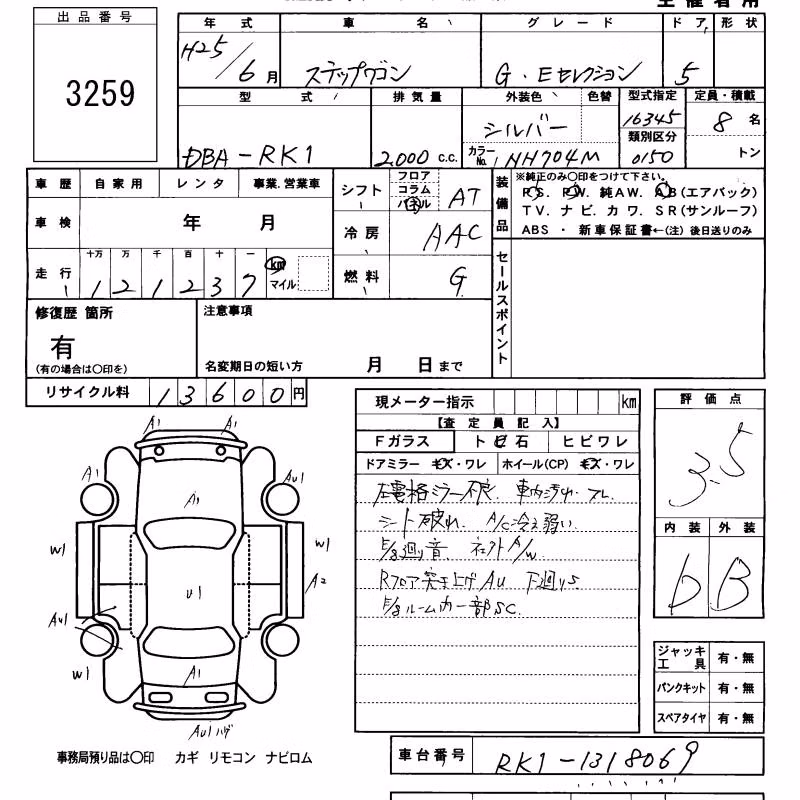 出品番号
3259
年式 車名 グレード ドア 形状
H25/6月 ステップワゴン G・Eセレクション 5
型式 排気量 外装色 色替 型式指定 定員・積載
シルバー 16345 8名
類別区分
DBA-RK1 2,000 c.c. カラーNo. NH704M 0150 トン
車歴 自家用 レンタ 事業.営業車
車検 年 月
走行 十万 万 千 百 十 一
121237 km マイル
シフト フロア コラム パネル AT
冷房 AAC
燃料 G
装備品
※純正のみ〇印をつけて下さい。
PS. PW. 純AW. AB(エアバック)
TV. ナビ. カワ. SR(サンルーフ)
ABS ・ 新車保証書←(注) 後日送りのみ
セールスポイント
修復歴 箇所
有
(有の場合は〇印を)
注意事項
名変期日の短い方 月 日まで
リサイクル料 13600円
現メーター指示 km
【査定員記入】
Fガラス トビ石 ヒビワレ
ドアミラー キズ・ワレ ホイール(CP) キズ・ワレ
左電格ミラー不良. 車内汚れ・スレ.
シート破れ. A/C冷え弱い.
E/g廻り音 社外A/w
Rフロア突き上げAU 下廻りS
E/gルームカー部SC.
評価点
3.5
内装 外装
b B
ジャッキ工具 有・無
パンクキット 有・無
スペアタイヤ 有・無
A1 A1
A1 A1 AU1
W1 W1
U1 A2
AU1
W1 A1 W1
AU1ハゲ
事務局預り品は〇印 カギ リモコン ナビロム
車台番号 RK1-1318069